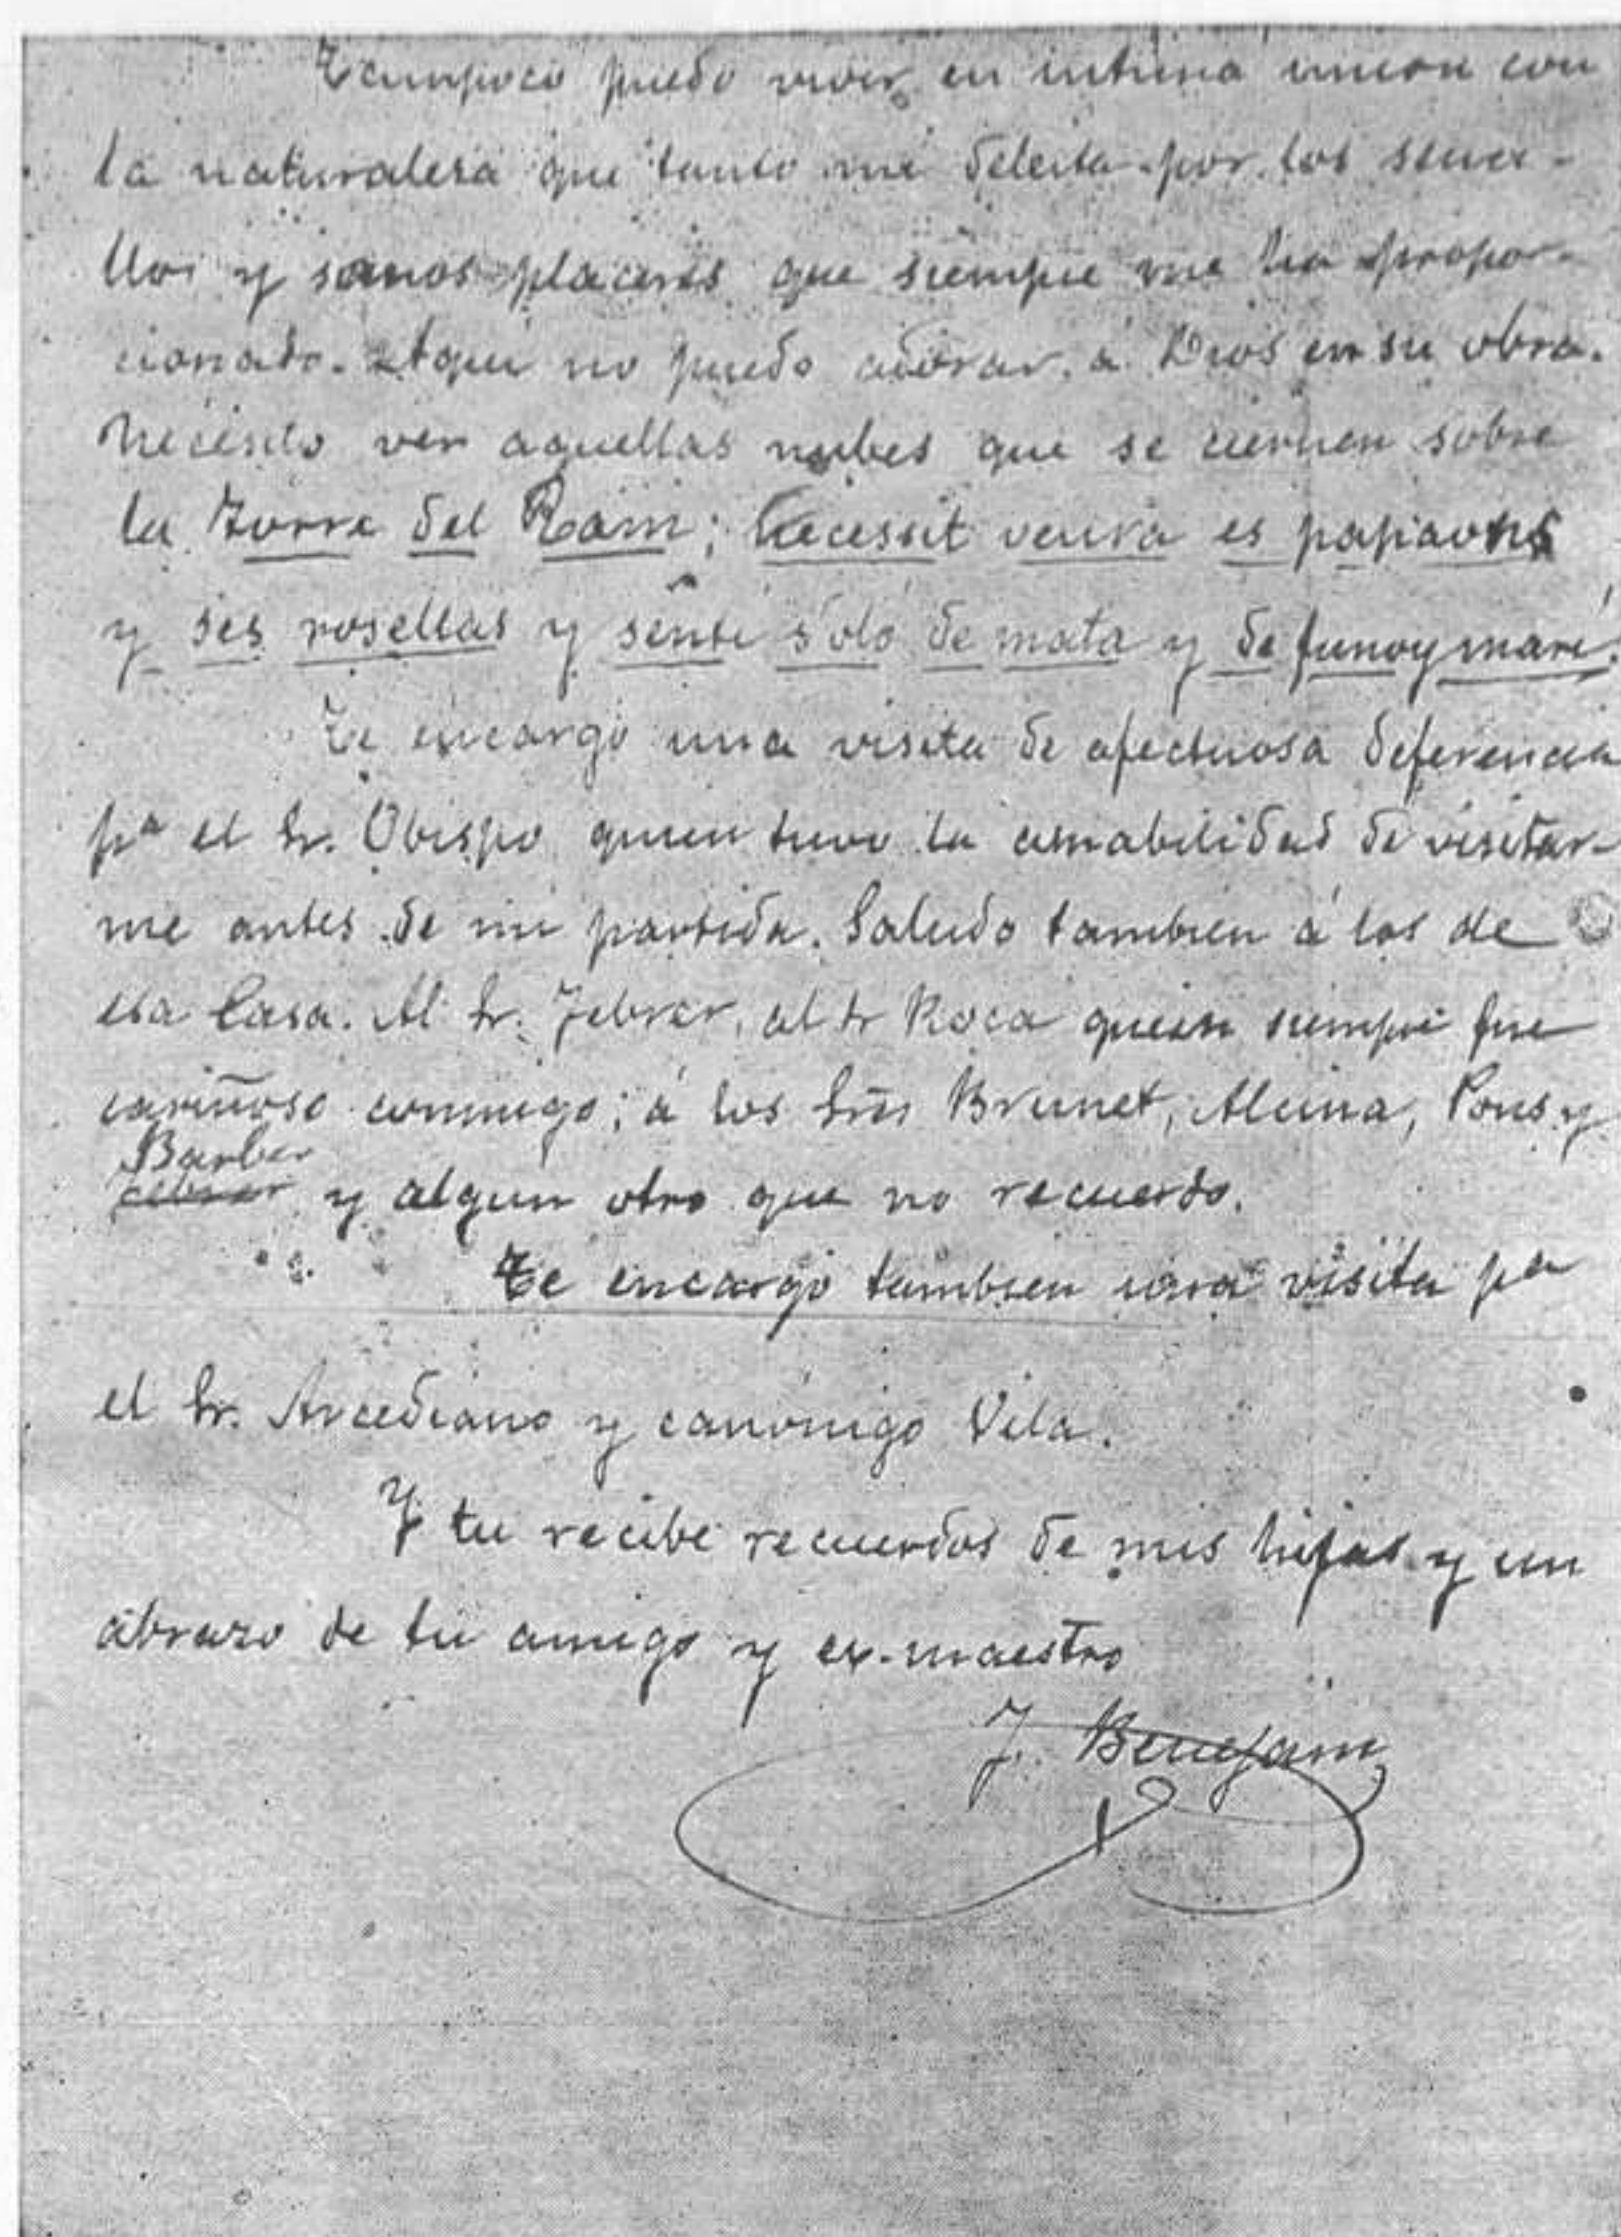 Tampoco puedo vivir en intima union con
la naturaleza que tanto me deleita por los senci-
llos y sanos placeres que siempre me ha propor-
cionado. Aqui no puedo adorar á Dios en su obra.
Necesito ver aquellas nubes que se ciernen sobre
la Torre del Ram; Necessit veura es papaons
y ses rosellas y senti s'oló de mata y de funoy mari.
Te encargo una visita de afectuosa deferencia
pª el Sr. Obispo quien tuvo la amabilidad de visitar-
me antes de mi partida. Saludo tambien á los de
esa Casa. Al Sr. Febrer, al Sr Roca quien siempre fue
cariñoso conmigo; á los Srs Brunet, Alcina, Pons y
Barber
Febrer y algun otro que no recuerdo.
Te encargo tambien una visita pª
el Sr. Arcediano y canónigo Vila.
Y tu recibe recuerdos de mis hijas y un
abrazo de tu amigo y ex-maestro
J. Benejam